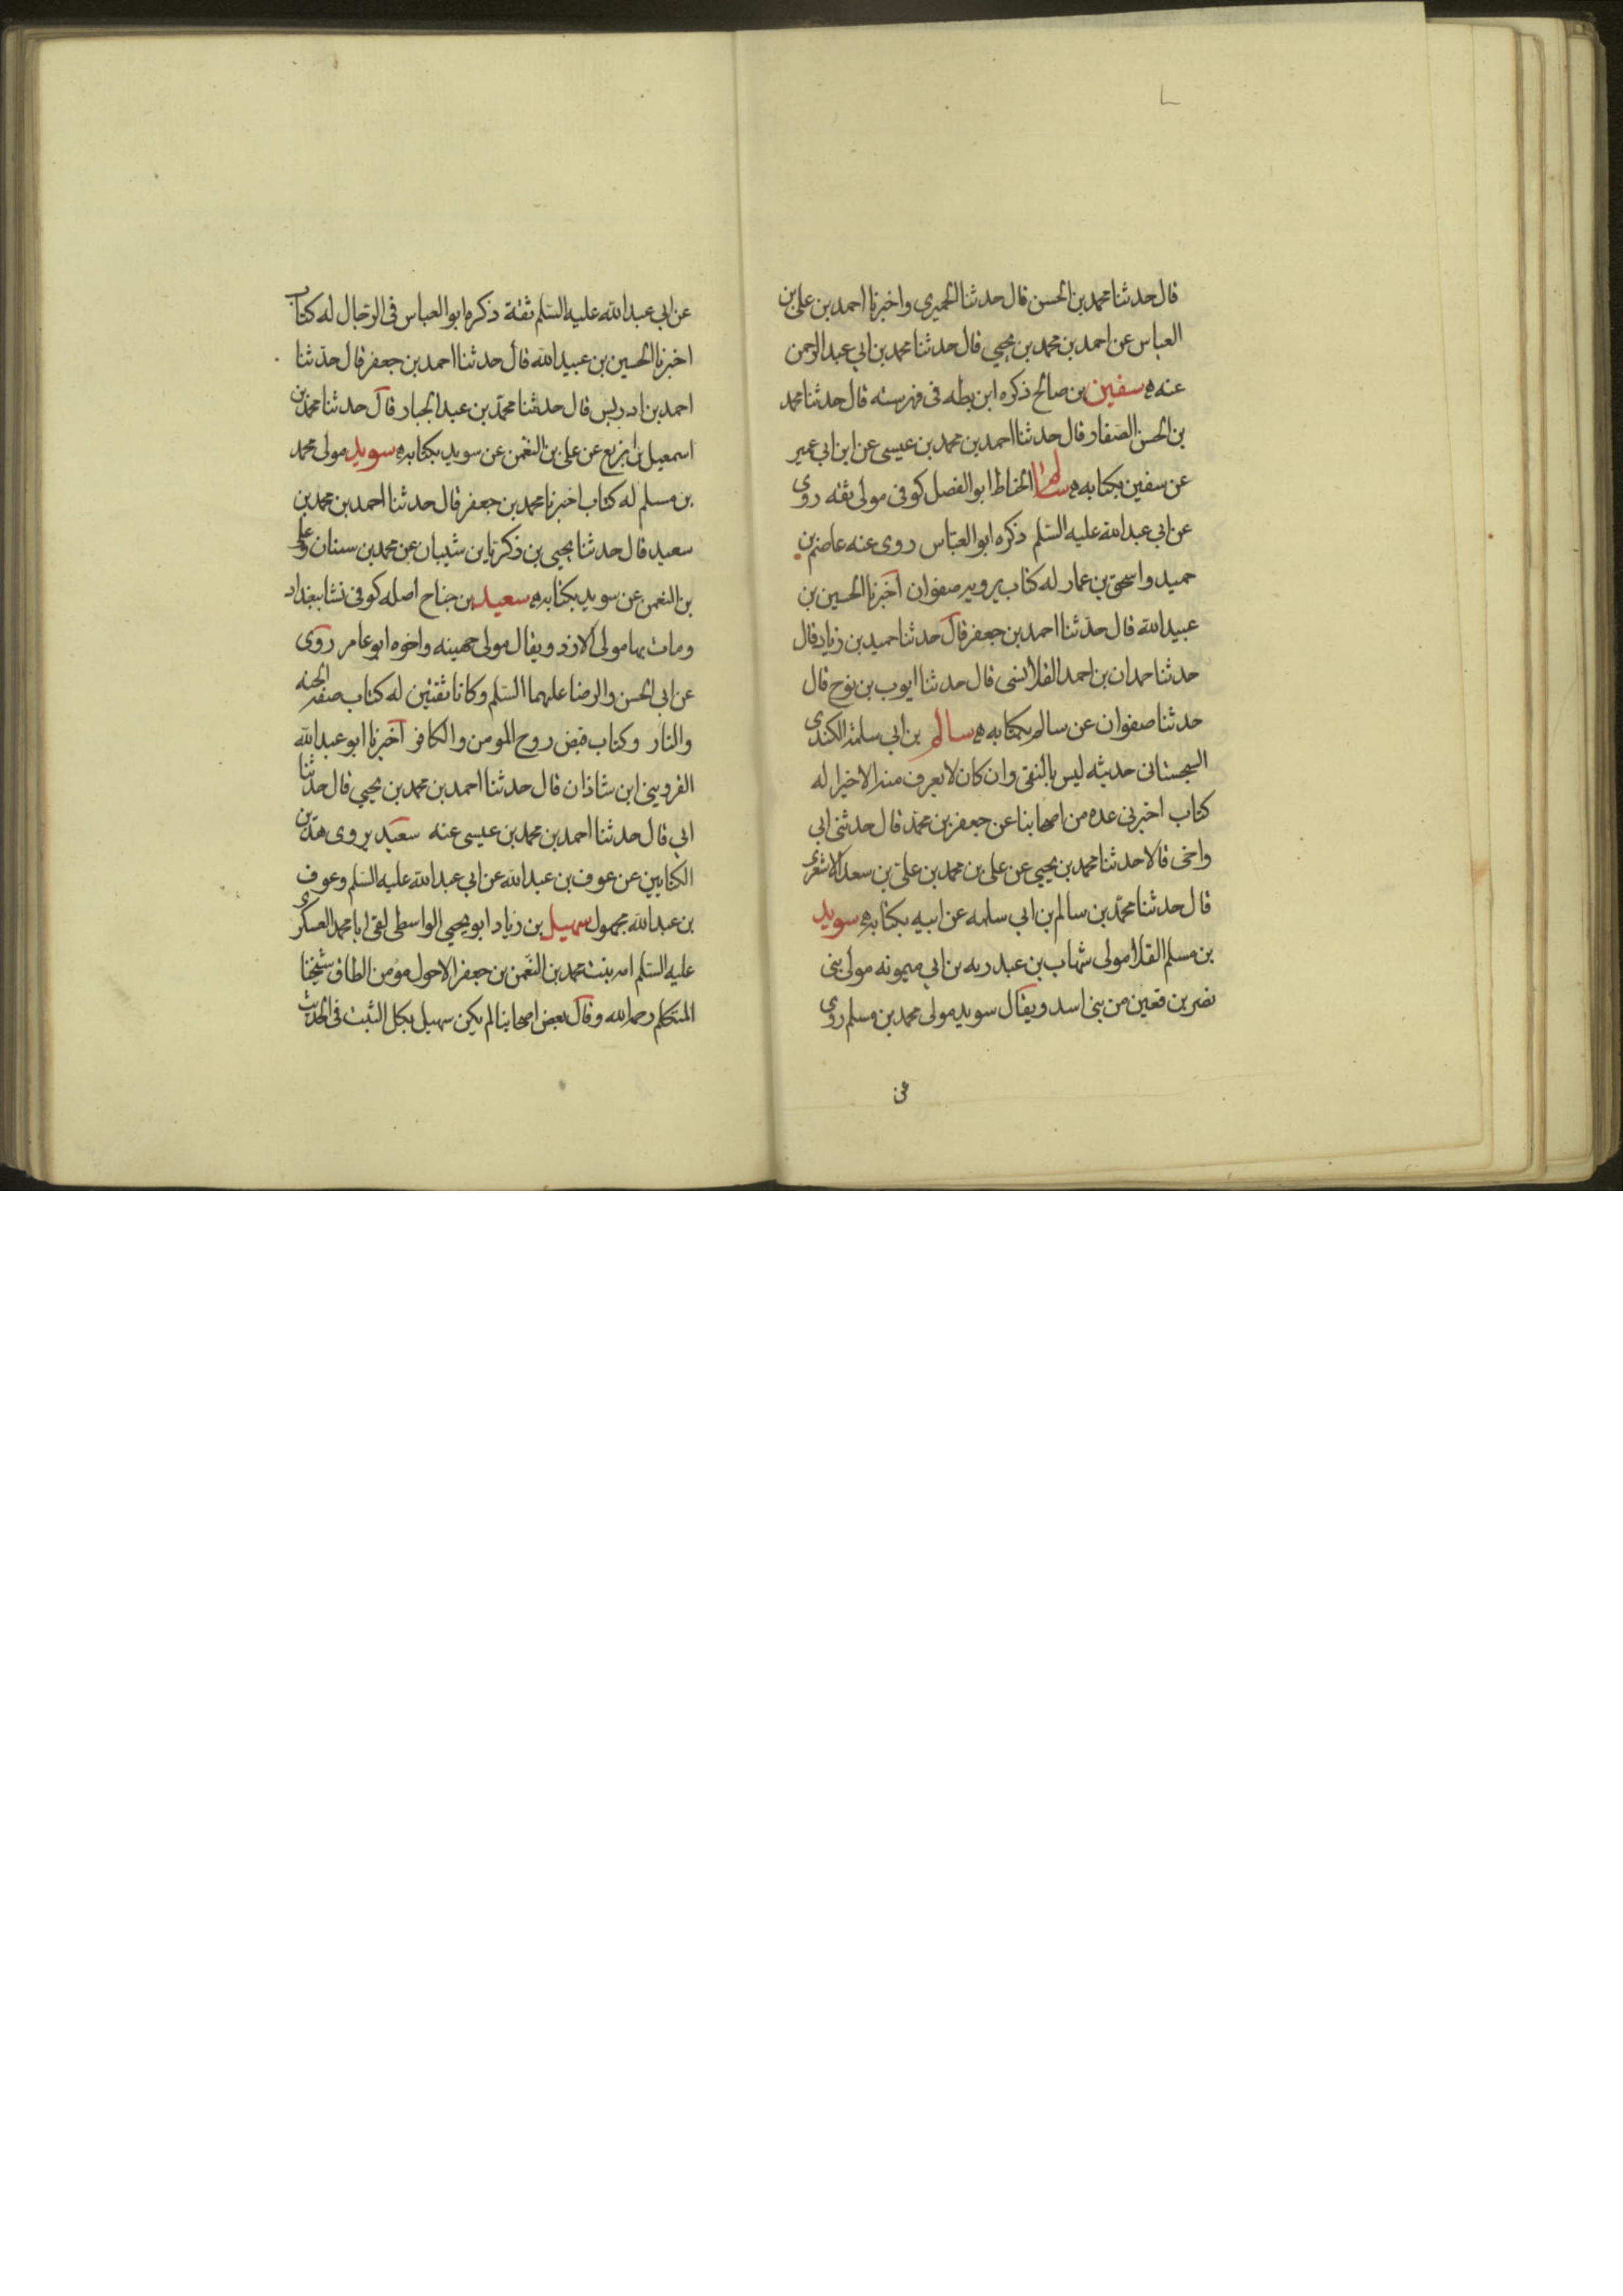 قال حدثنا محمد بن الحسن قال حدثنا الحميرى واخبرنا احمد بن على بن
العباس عن احمد بن محمد بن يحيى قال حدثنا محمد بن ابي عبد الرحمن
عنه ه سفين بن صالح ذكره ابن بطه فى فهرسته قال حدثنا محمد
بن الحسن الصفار قال حدثنا احمد بن محمد بن عيسى عن ابن ابى عمير
عن سفين بكتابه ه سالم الحناط ابو الفضل كوفى مولى ثقه روى
عن ابي عبد الله عليه السّلم ذكره ابو العبّاس روى عنه عاصم بن
حميد واسحق بن عمار له كتاب يرويه صفوان اخبرنا الحسين بن
عبيد الله قال حدّثنا احمد بن جعفر قال حدثنا حميد بن زياد قال
حدثنا حمدان بن احمد القلانسى قال حدثنا ايوب بن نوح قال
حدثنا صفوان عن سالم بكتابه ه سالم بن ابي سلمة الكندى
السجستانى حديثه ليس بالنقى وان كان لا يعرف منه الا خيرا له
كتاب اخبرنى عده من اصحابنا عن جعفر بن محمد قال حدثنى ابى
واخى قالا حدثنا محمد بن يحيى عن على بن محمد بن على بن سعد الاشعرى
قال حدثنا محمّد بن سالم بن ابى سلمه عن ابيه بكتابه ه سويد
بن مسلم القلا مولى شهاب بن عبد ربه بن ابي ميمونه مولى بنى
نصر بن قعين من بنى اسد ويقال سويد مولى محمد بن مسلم روى
عن
عن ابي عبد الله عليه السّلم ثقة ذكره ابو العباس فى الرّجال له كتاب
اخبرنا الحسين بن عبيد الله قال حدثنا احمد بن جعفر قال حدّثنا
احمد بن ادريس قال حدثنا محمّد بن عبد الجبار قال حدثنا محمد بن
اسمعيل بن بزيع عن على بن النعمن عن سويد بكتابه ه سويد مولى محمد
بن مسلم له كتاب اخبرنا محمد بن جعفر قال حدثنا احمد بن محمد بن
سعيد قال حدثنا يحيى بن زكريا بن شيبان عن محمد بن سنان وعلى
بن النعمن عن سويد بكتابه ه سعيد بن جناح اصله كوفى نشا ببغداد
ومات بها مولى الازد ويقال مولى جهينه واخوه ابو عامر روى
عن ابي الحسن والرضا عليهما السّلم وكانا ثقتين له كتاب صفه الجنه
والنار وكتاب قبض روح المومن والكافر اخبرنا ابو عبد الله
القزوينى ابن شاذان قال حدثنا احمد بن محمد بن يحيى قال حدثنا
ابي قال حدثنا احمد بن محمد بن عيسى عنه سعيد يروى هذين
الكتابين عن عوف بن عبد الله عن ابي عبد الله عليه السّلم وعوف
بن عبد الله مجهول سهيل بن زياد ابو يحيى الواسطى لقى ابا محمد العسكرى
عليه السّلم امه بنت محمد بن النّعمن بن جعفر الاحول مؤمن الطاق شيخنا
المتكلم رحمه الله وقال بعض اصحابنا لم يكن سهيل بكل الثبت فى الحديث